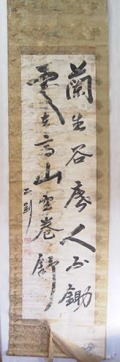 蘭生谷底人不鋤
雲在高山空卷舒